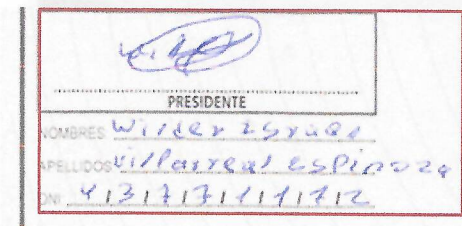 PRESIDENTE
NOMBRES Wilder
APELLIDOS Villarreal Espinoza
DNI 43771172